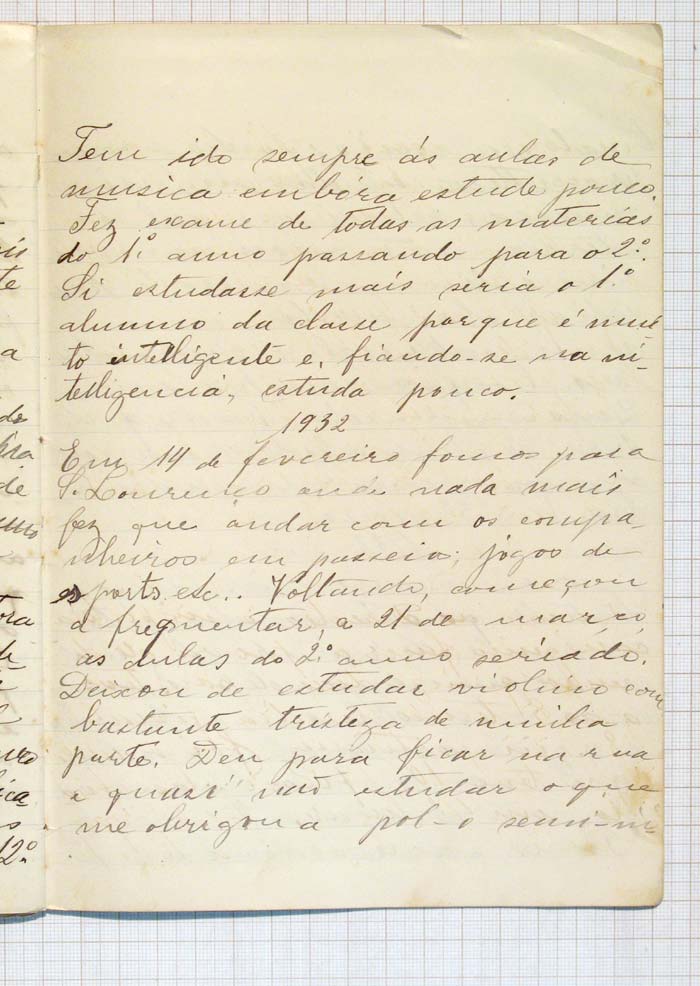 Tem ido sempre ás aulas de
musica embóra estude pouco.
Fez exame de todas as materias
do 1.º anno passando para o 2.º.
Si estudasse mais seria o 1.º
alumno da classe porque é mui-
to intelligente e, fiando-se na in-
telligencia, estuda pouco.
1932
Em 14 de fevereiro fomos para
S. Lourenço onde nada mais
fez que andar com os compa-
nheiros em passeios, jogos de
esports etc.. Voltando, começou
a frequentar, a 21 de março,
as aulas do 2.º anno seriado.
Deixou de estudar violino com
bastante tristeza de minha
parte. Deu para ficar na rua
e quasi não estudar o que
me obrigou a pol-o semi-in
is
te
a
de
de
tora
12.º